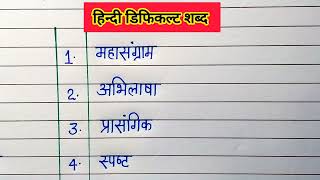 हिन्दी डिफिकल्ट शब्द
1. महासंग्राम
2. अभिलाषा
3. प्रासंगिक
4. स्पष्ट